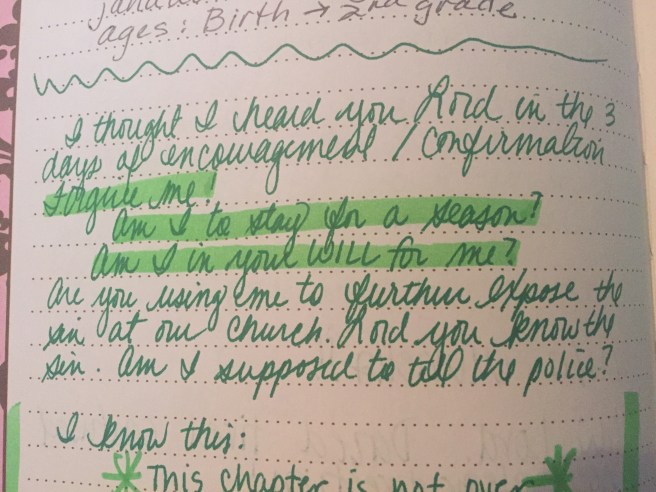 ages: Birth → 2nd grade
I thought I heard you Lord in the 3
days of encouragement / confirmation
Forgive me!
Am I to stay for a season?
Am I in your WILL for me?
Are you using me to further expose the
sin at our church. Lord you know the
sin. Am I supposed to tell the police?
I know this:
* This chapter is not over *